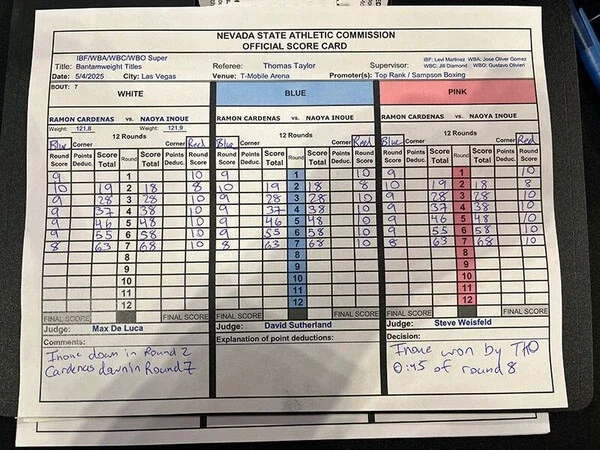 NEVADA STATE ATHLETIC COMMISSION
OFFICIAL SCORE CARD
IBF/WBA/WBC/WBO Super
Title: Bantamweight Titles Referee: Thomas Taylor Supervisor: IBF: Levi Martinez WBA: Jose Oliver Gomez
WBC: Jill Diamond WBO: Gustavo Olivieri
Date: 5/4/2025 City: Las Vegas Venue: T-Mobile Arena Promoter(s): Top Rank / Sampson Boxing
BOUT: 7
WHITE BLUE PINK
RAMON CARDENAS vs. NAOYA INOUE RAMON CARDENAS vs. NAOYA INOUE RAMON CARDENAS vs. NAOYA INOUE
Weight: 121.8 Weight: 121.9
12 Rounds 12 Rounds 12 Rounds
Blue Corner Corner Red Blue Corner Corner Red Blue Corner Corner Red
Round Score Points Deduc. Score Total Round Score Total Points Deduc. Round Score Round Score Points Deduc. Score Total Round Score Total Points Deduc. Round Score Round Score Points Deduc. Score Total Round Score Total Points Deduc. Round Score
9 1 10 9 1 10 9 1 10
10 19 2 18 8 10 19 2 18 8 10 19 2 18 8
9 28 3 28 10 9 28 3 28 10 9 28 3 28 10
9 37 4 38 10 9 37 4 38 10 9 37 4 38 10
9 46 5 48 10 9 46 5 48 10 9 46 5 48 10
9 55 6 58 10 9 55 6 58 10 9 55 6 58 10
8 63 7 68 10 8 63 7 68 10 8 63 7 68 10
8 8 8
9 9 9
10 10 10
11 11 11
12 12 12
FINAL SCORE FINAL SCORE FINAL SCORE FINAL SCORE FINAL SCORE FINAL SCORE
Judge: Max De Luca Judge: David Sutherland Judge: Steve Weisfeld
Comments: Explanation of point deductions: Decision:
Inoue down in Round 2
Cardenas down in Round 7
Inoue won by TKO
0:45 of round 8